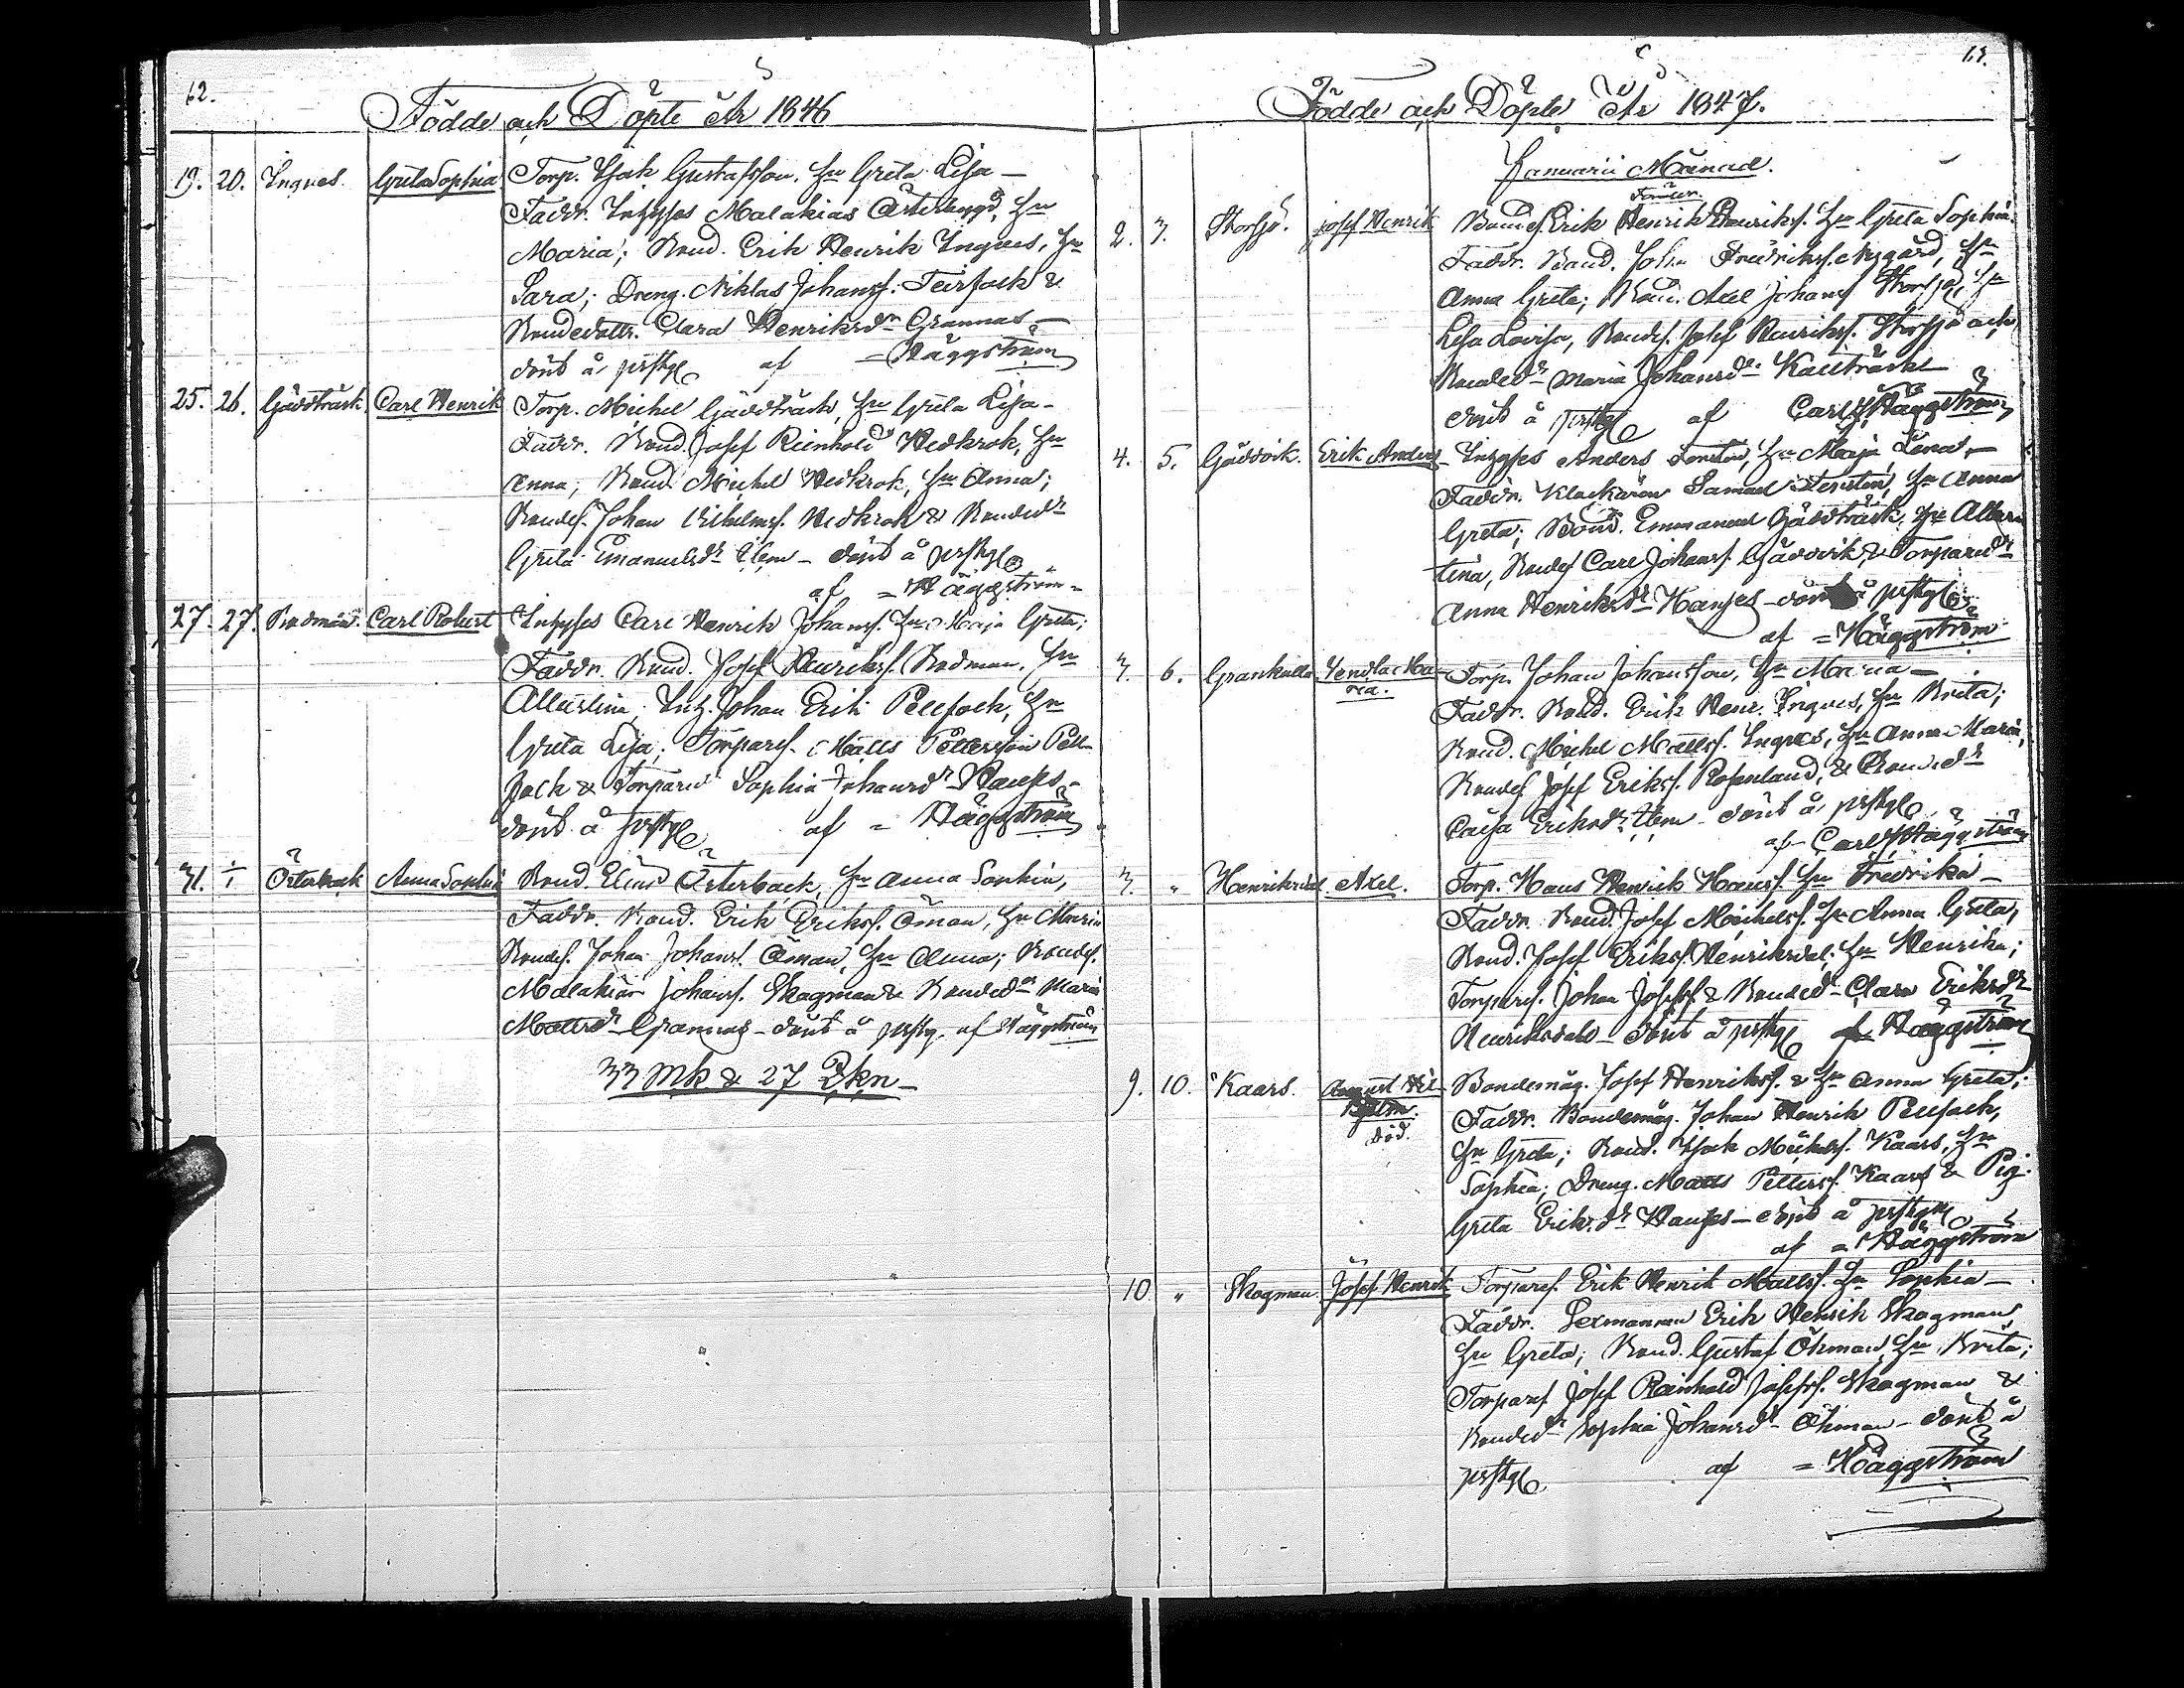 62.
Födde och Döpte År 1846
19. 20. Ingves. Greta Sophia Torp. Isak Gustafsson, Hu Greta Lisa —
Faddr. Inhyses Malakias Österbygd, Hu
Maria; Bond. Erik Henrik Ingves, Hu
Sara; Dreng. Niklas Johanss. Teirfolk &
Bondedottr. Clara Henriksdr Grannas —
döpt å prstg af = Häggström
25. 26. Gäddträsk Carl Henrik Torp. Michel Gäddträsk, Hu Greta Lisa —
Faddr. Bond. Josef Reinhold Nedkrok, Hu
Anna; Bond. Michel Nedkrok, Hu Anna;
Bondes. Johan Vilhelmss. Nedkrok & Bondedr
Greta Emanuelsdr Elem — döpt å prstg
af = Häggström =
27. 27. Carl Robert Inhyses Carl Henrik Johanss. Hu Maja Greta;
Faddr. Bond. Josef Henrikss. Hu
Albertina; Inh. Johan Erik Pellfolk, Hu
Greta Lisa; Torpares. Matts Pettersson Pell-
folk & Torparedr Sophia Johansdr
döpt å prstg af = Häggström
31. 1/1 Österback Anna Sophia Bond. Elias Österback, Hu Anna Sophia,
Faddr. Bond. Erik Erikss. Öman, Hu Maria
Bondes. Johan Johanss. Öman, Hu Anna; Bondes.
Malakias Johanss. Skagman & Bondedr Maria
Mattsdr Grannas — döpt å prstg. af Häggström
33 Mk & 27 Qkn —
63.
Födde och Döpte År 1847.
Januarii Månad.
2. 3. Storsjö. Josef Henrik Bondes Erik Henrik Henrikss. Hu Greta Sophia.
Faddr. Bond. Johan Fredrikss. Nygård, Hu
Anna Greta; Bond. Axel Johanss Storsjö, Hu
Lisa Lovisa, Bondes. Josef Henrikss. Storsjö och
Bondedr Maria Johansdr Kallträsk
döpt å prstg af Carl J Häggström
4. 5. Gäddvik. Erik Anders Inhyses Anders Hu Maja Lena —
Faddr. Klockaren Samuel Hu Anna
Greta; Bond. Emmanuel Gäddträsk, Hu Alber-
tina, Bondes Carl Johanss. Gäddvik & Torparedr
Anna Henriksdr — döpt å prstg
af = Häggström
3. 6. Grankulla Vendla Ma- Torp. Johan Johansson, Hu Maria —
ria. Faddr. Bond. Erik Henr. Ingves, Hu Brita;
Bond. Michel Mattss. Ingves, Hu Anna Maria,
Bondes Josef Erikss. Rosenland, & Bondedr
Cajsa Eriksdr Elem — döpt å prstg
af Carl J Häggström
3. " Henriksdal Axel. Torp. Hans Henrik Hanss. Hu Fredrika —
Faddr. Bond. Josef Michelss. Hu Anna Greta,
Bond. Josef Erikss. Henriksdal, Hu Henrika;
Torpares. Johan Josefss & Bondedr Clara Eriksdr
Henriksdal — döpt å prstg af Häggström
9. 10. Kaars. August Vil- Bondemåg. Josef Henrikss. & Hu Anna Greta;
helm. Faddr. Bondemåg. Johan Henrik Pellfolk,
död. Hu Greta; Bond. Isak Michelss. Kaars, Hu
Sophia; Dreng. Matts Petterss. Kaars & Pig.
Greta Eriksdr — döpt å prstg
af = Häggström
10 " Skagman Josef Henrik Torpares. Erik Henrik Mattss. Hu Sophia —
Faddr. Sexmannen Erik Henrik Skagman,
Hu Greta; Bond. Gustaf Öhman, Hu Brita;
Torpares Josef Reinhold Josefss. Skagman &
Bondedr Sophia Johansdr Öhman — döpt å
prstg af = Häggström